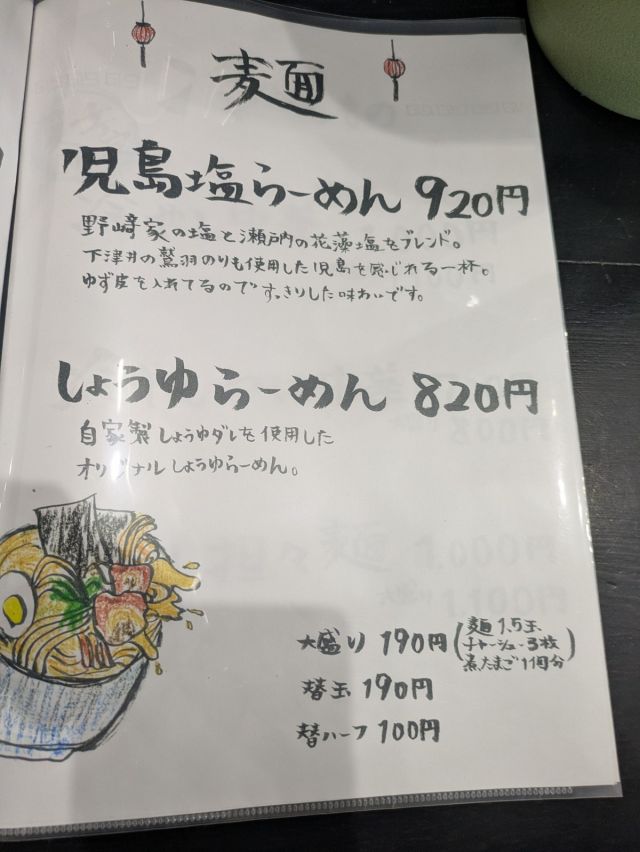 麺
児島塩らーめん 920円
野﨑家の塩と瀬戸内の花藻塩をブレンド。
下津井の鷲羽のりも使用した児島を感じれる一杯。
ゆず皮を入れてるのですっきりした味わいです。
しょうゆらーめん 820円
自家製しょうゆダレを使用した
オリジナルしょうゆらーめん。
大盛り 190円(麺1.5玉 チャーシュー3枚 煮たまご1個分)
替玉 190円
替ハーフ 100円